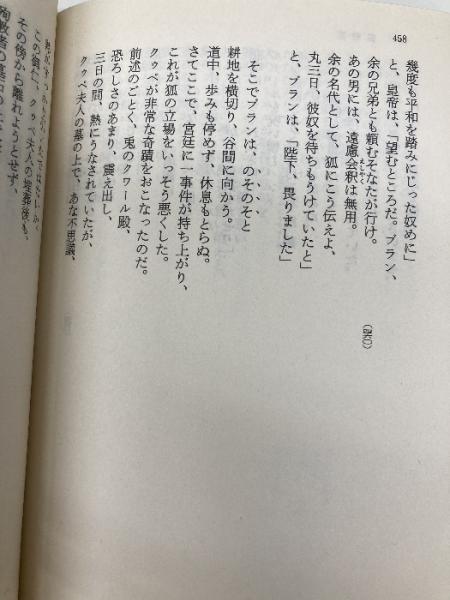 458
幾度も平和を踏みにじった奴めに」
と、皇帝は、「望むところだ。ブラン、
余の兄弟とも頼むそなたが行け。
あの男には、遠慮会釈は無用。
余の名代として、狐にこう伝えよ、
丸三日、彼奴を待ちもうけていたと」
と、ブランは、「陛下、畏りました」
そこでブランは、のそのそと
耕地を横切り、谷間に向かう。
道中、歩みも停めず、休息もとらぬ。
さてここで、宮廷に一事件が持ち上がり、
これが狐の立場をいっそう悪くした。
クゥペが非常な奇蹟をおこなったのだ。
前述のごとく、兎のクワール殿、
恐ろしさのあまり、震え出し、
三日の間、熱にうなされていたが、
クゥペ夫人の墓の上で、あな不思議、
この御仁、クゥペ夫人の埋葬後も、
その傍から離れようとせず、
殉教者の墓石の上で